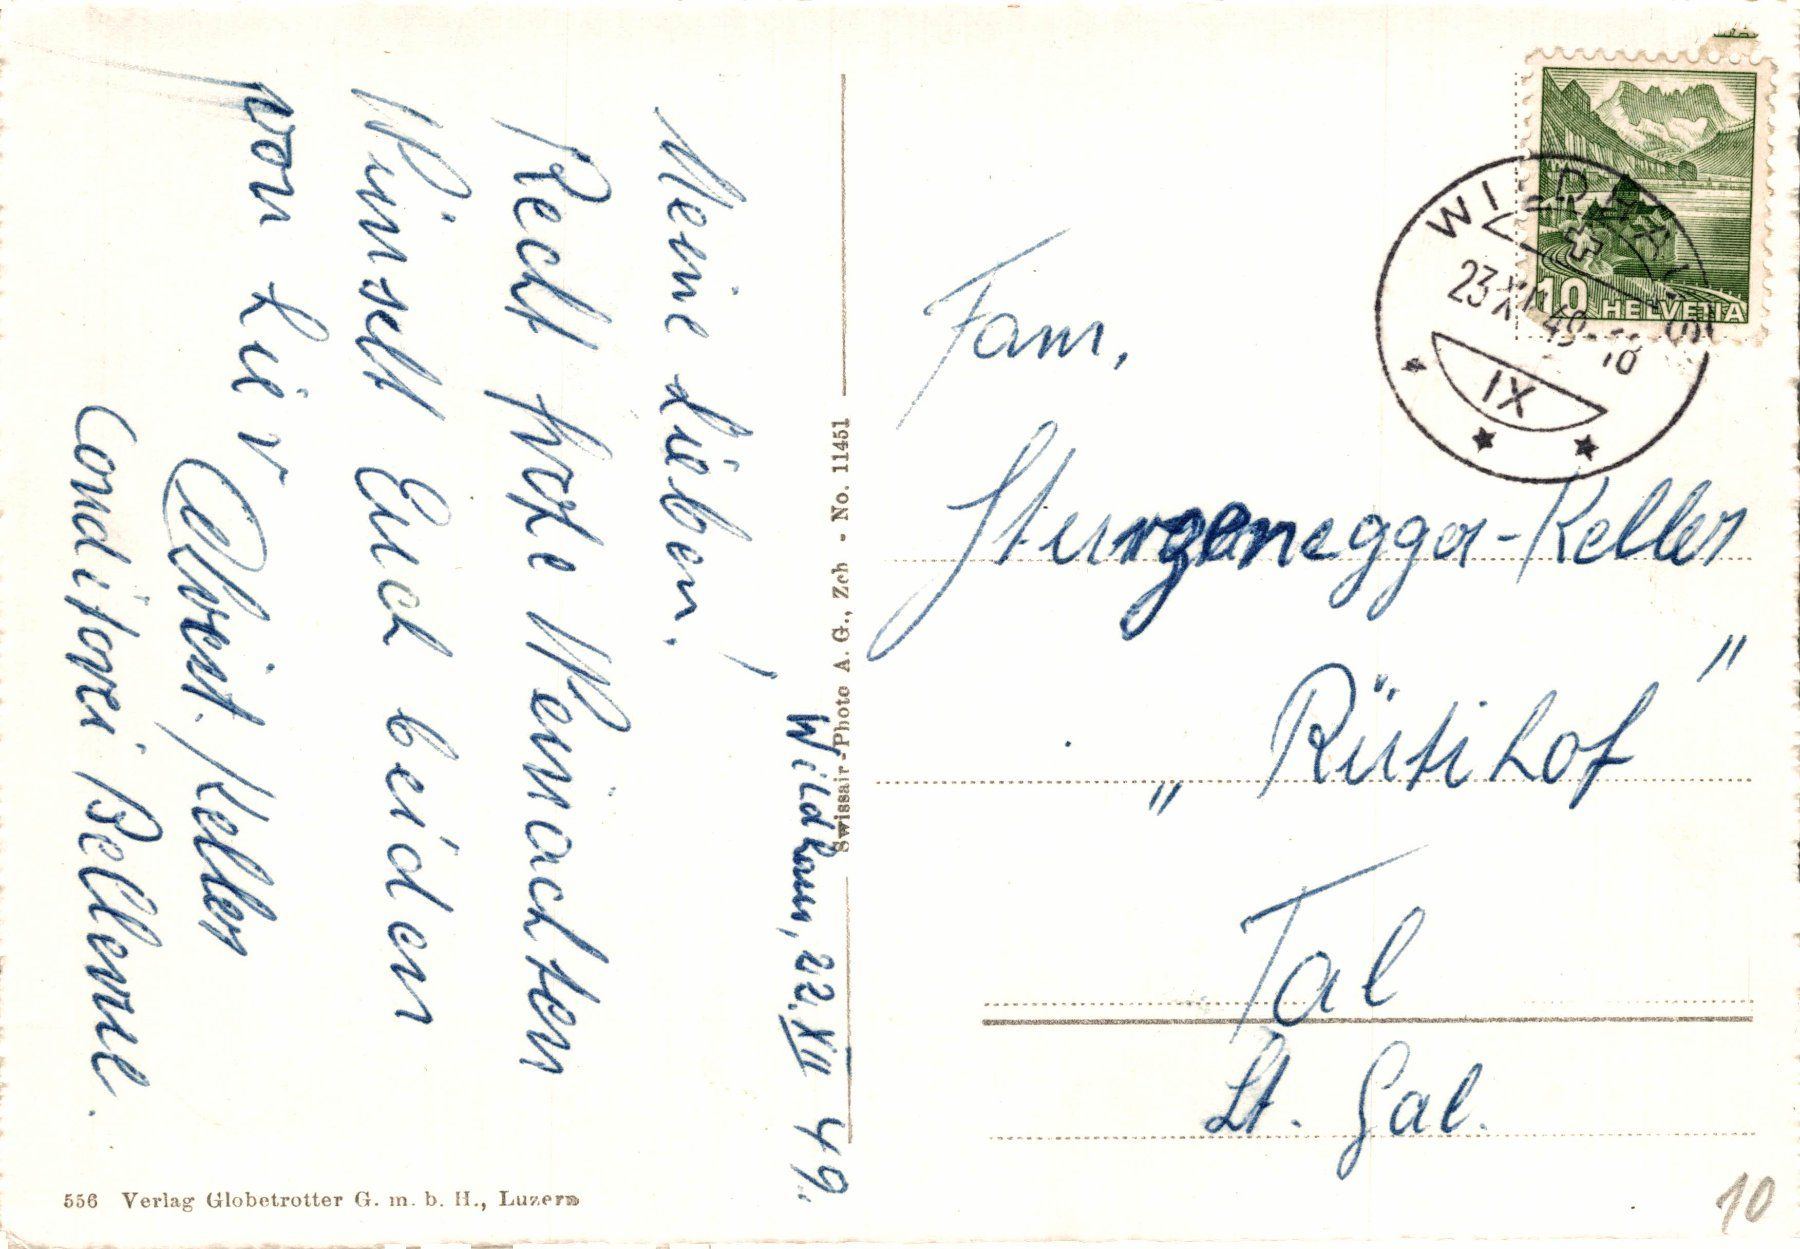 Wildhaus, 22. XII 49.
Meine Lieben!
Recht frohe Weinachten
Wünscht Euch beiden
von hier
Albert. Keller
Conditorei Bellevue.
Swissair-Photo A. G., Zch - No. 11451
556 Verlag Globetrotter G. m. b. H., Luzern
10 HELVETIA
WILDHAUS
23 XII 49 - 18
IX
Fam.
Sturzenegger-Keller
„Rütihof"
Tal
St. Gal.
10